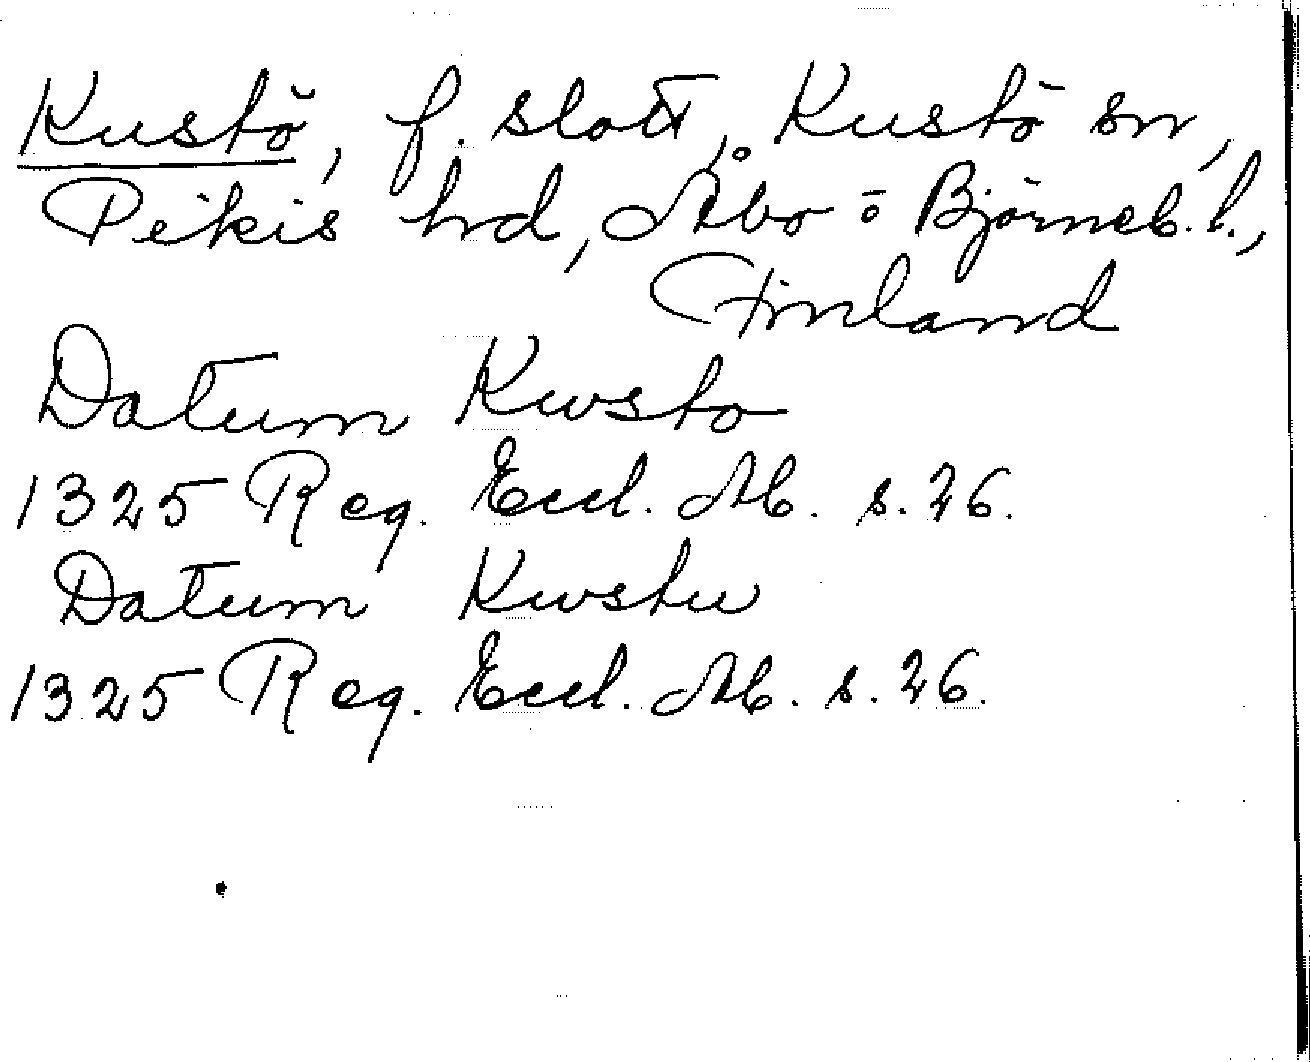 Kustö, f. slott, Kustö sn,
Pikis hd, Åbo o Björneb. l.,
Finland
Datum Kwsto
1325 Reg. Eccl. Ab. s. 26.
Datum Kwstu
1325 Reg. Eccl. Ab. s. 26.